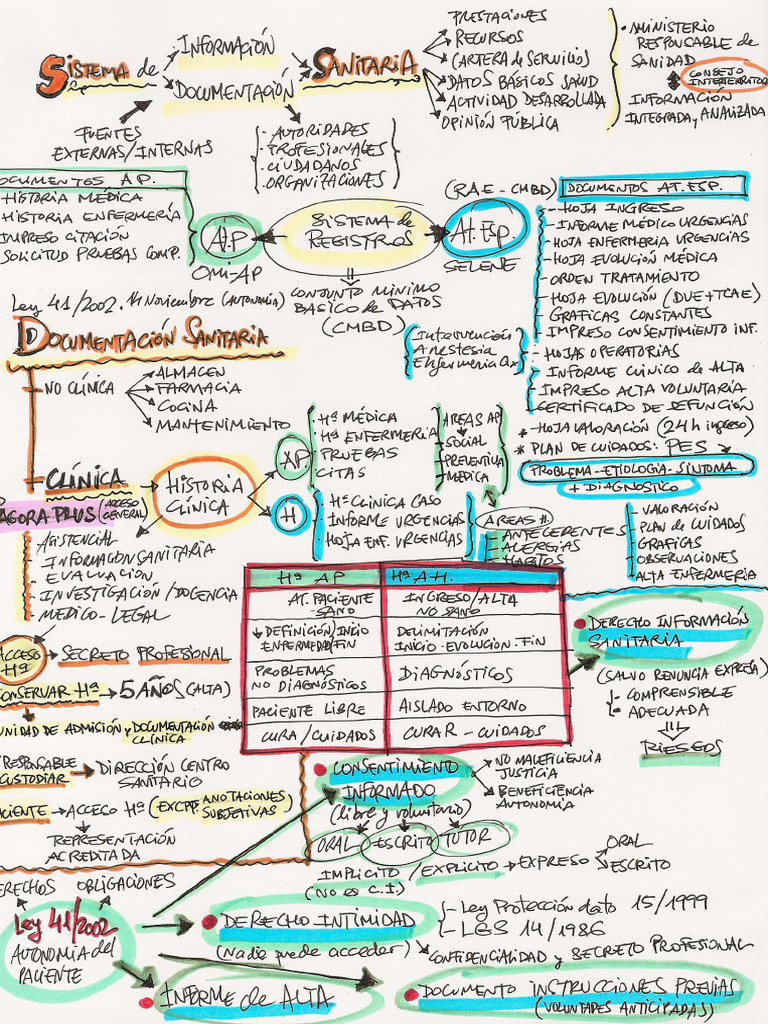 SISTEMA de
INFORMACIÓN
DOCUMENTACIÓN
SANITARIA
PRESTACIONES
RECURSOS
(CARTERA de SERVICIOS)
DATOS BÁSICOS SALUD
ACTIVIDAD DESARROLLADA
OPINIÓN PÚBLICA
MINISTERIO
RESPONSABLE de
SANIDAD
CONSEJO
INTERTERRITOR
INFORMACIÓN
INTEGRADA y ANALIZADA
FUENTES
EXTERNAS/INTERNAS
- AUTORIDADES
- PROFESIONALES
- CIUDADANOS
- ORGANIZACIONES
OCUMENTOS A.P.
HISTORIA MÉDICA
HISTORIA ENFERMERÍA
IMPRESO CITACIÓN
SOLICITUD PRUEBAS COMP.
At.P
OMI-AP
SISTEMA de
REGISTROS
(RAE-CMBD)
At. Esp.
SELENE
CONJUNTO MÍNIMO
BÁSICO de DATOS
(CMBD)
DOCUMENTOS AT. ESP.
- HOJA INGRESO
- INFORME MÉDICO URGENCIAS
- HOJA ENFERMERIA URGENCIAS
- HOJA EVOLUCIÓN MÉDICA
- ORDEN TRATAMIENTO
- HOJA EVOLUCIÓN (DUE+TCAE)
- GRÁFICAS CONSTANTES
- IMPRESO CONSENTIMIENTO INF.
- HOJAS OPERATORIAS
- INFORME CLINICO de ALTA
- IMPRESO ALTA VOLUNTARÍA
- CERTIFICADO DE DEFUNCIÓN
* HOJA VALORACIÓN (24h ingreso)
* PLAN DE CUIDADOS: PES
PROBLEMA-ETIOLOGÍA-SÍNTOMA
+ DIAGNÓSTICO
- VALORACIÓN
- PLAN de CUIDADOS
- GRAFICAS
- OBSERVACIONES
- ALTA ENFERMERIA
Intervención
Anestesia
Enfermería Qx
Ley 41/2002. 14 Noviembre (AUTONOMIA)
DOCUMENTACIÓN SANITARIA
NO CLÍNICA
ALMACEN
FARMACIA
COCINA
MANTENIMIENTO
CLÍNICA
HISTORIA
CLÍNICA
AP
Hª MÉDICA
Hª ENFERMERIA
PRUEBAS
CITAS
AREAS AP
SOCIAL
PREVENTIVA
MÉDICA
H
Hª CLINICA CASO
INFORME URGENCIAS
HOJA ENF. URGENCIAS
AREAS H.
- ANTECEDENTES
- ALERGIAS
- HÁBITOS
AGORA PLUS (ACCESO GENERAL)
ASISTENCIAL
INFORMACION SANITARIA
EVALUACIÓN
- INVESTIGACIÓN/DOCENCIA
- MEDICO-LEGAL
ACCESO
Hª
SECRETO PROFESIONAL
CONSERVAR Hª → 5 AÑOS (ALTA)
UNIDAD DE ADMICIÓN y DOCUMENTACIÓN
CLÍNICA
RESPONSABLE
CUSTODIAR
DIRECCIÓN CENTRO
SANITARIO
ACIENTE → ACCECO Hª (EXCPT. ANOTACIONES
SUBJETIVAS)
REPRESENTACIÓN
ACREDITADA
Hª AP | Hª A.H.
AT. PACIENTE - SANO | INGRESO/ALTA NO SANO
DEFINICIÓN/INICIO ENFERMEDAD/FIN | DELIMITACIÓN INICIO-EVOLUCION-FIN
PROBLEMAS NO DIAGNÓSTICOS | DIAGNÓSTICOS
PACIENTE LIBRE | AISLADO ENTORNO
CURA/CUIDADOS | CURAR-CUIDADOS
DERECHO INFORMACIÓN
SANITARIA
(SALVO RENUNCIA EXPRESA)
- COMPRENSIBLE
- ADECUADA
RIESGOS
CONSENTIMIENTO
INFORMADO
(libre y voluntario)
NO MALEFICIENCIA
JUSTICIA
BENEFICIENCIA
AUTONOMIA
ORAL
ESCRITO
TUTOR
IMPLICITO / EXPLICITO → EXPRESO
(No es C.I.)
ORAL
ESCRITO
DERECHOS OBLIGACIONES
Ley 41/2002
AUTONOMÍA del
PACIENTE
DERECHO INTIMIDAD
(Nadie puede acceder)
- Ley Protección dato 15/1999
- LGS 14/1986
CONFIDENCIALIDAD y SECRETO PROFESIONAL
INFORME de ALTA
DOCUMENTO INSTRUCCIONES PREVIAS
(VOLUNTADES ANTICIPADAS)